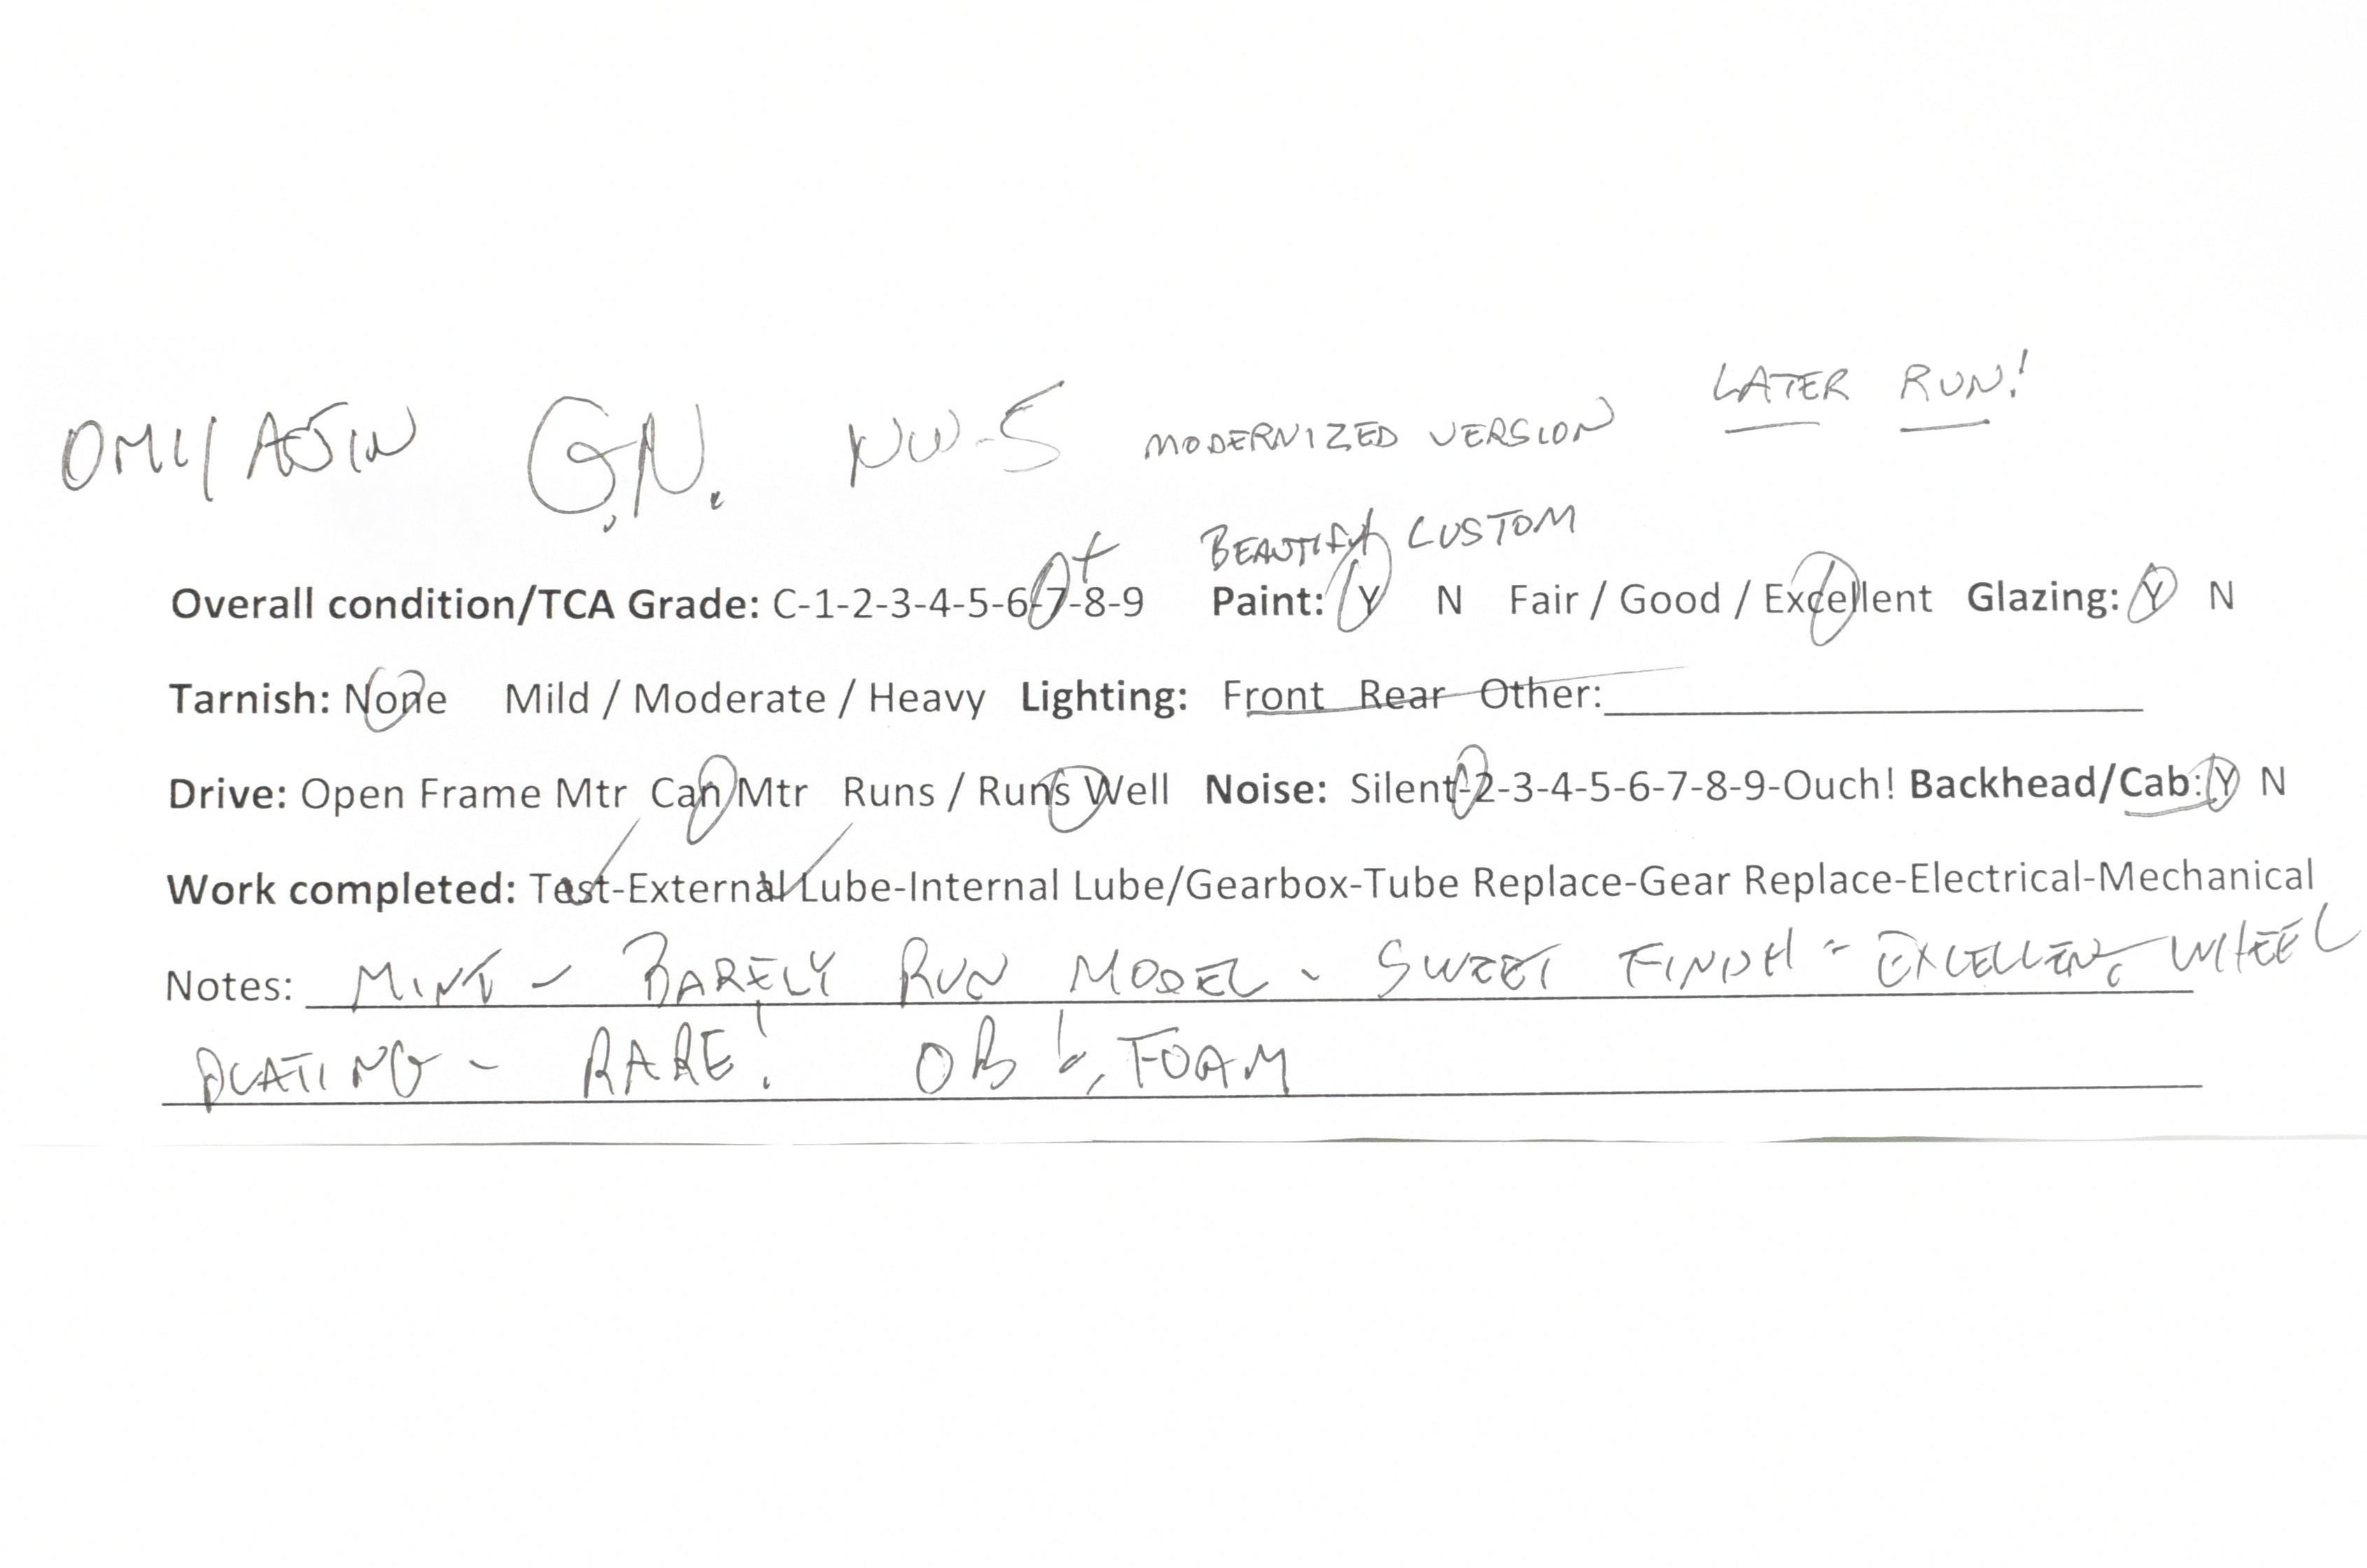 LATER RUN!
OMI/ASIN G.N. NW-5 MODERNIZED VERSION
BEAUTIFUL CUSTOM
Overall condition/TCA Grade: C-1-2-3-4-5-6-7-8-9 + Paint: Y N Fair / Good / Excellent Glazing: Y N
Tarnish: None Mild / Moderate / Heavy Lighting: Front Rear Other:
Drive: Open Frame Mtr Can Mtr Runs / Runs Well Noise: Silent-2-3-4-5-6-7-8-9-Ouch! Backhead/Cab: Y N
Work completed: Test-External Lube-Internal Lube/Gearbox-Tube Replace-Gear Replace-Electrical-Mechanical
Notes: MINT - BARELY RUN MODEL - SWEET FINISH - EXCELLENT WHEEL
PLATING - RARE! OB FOAM